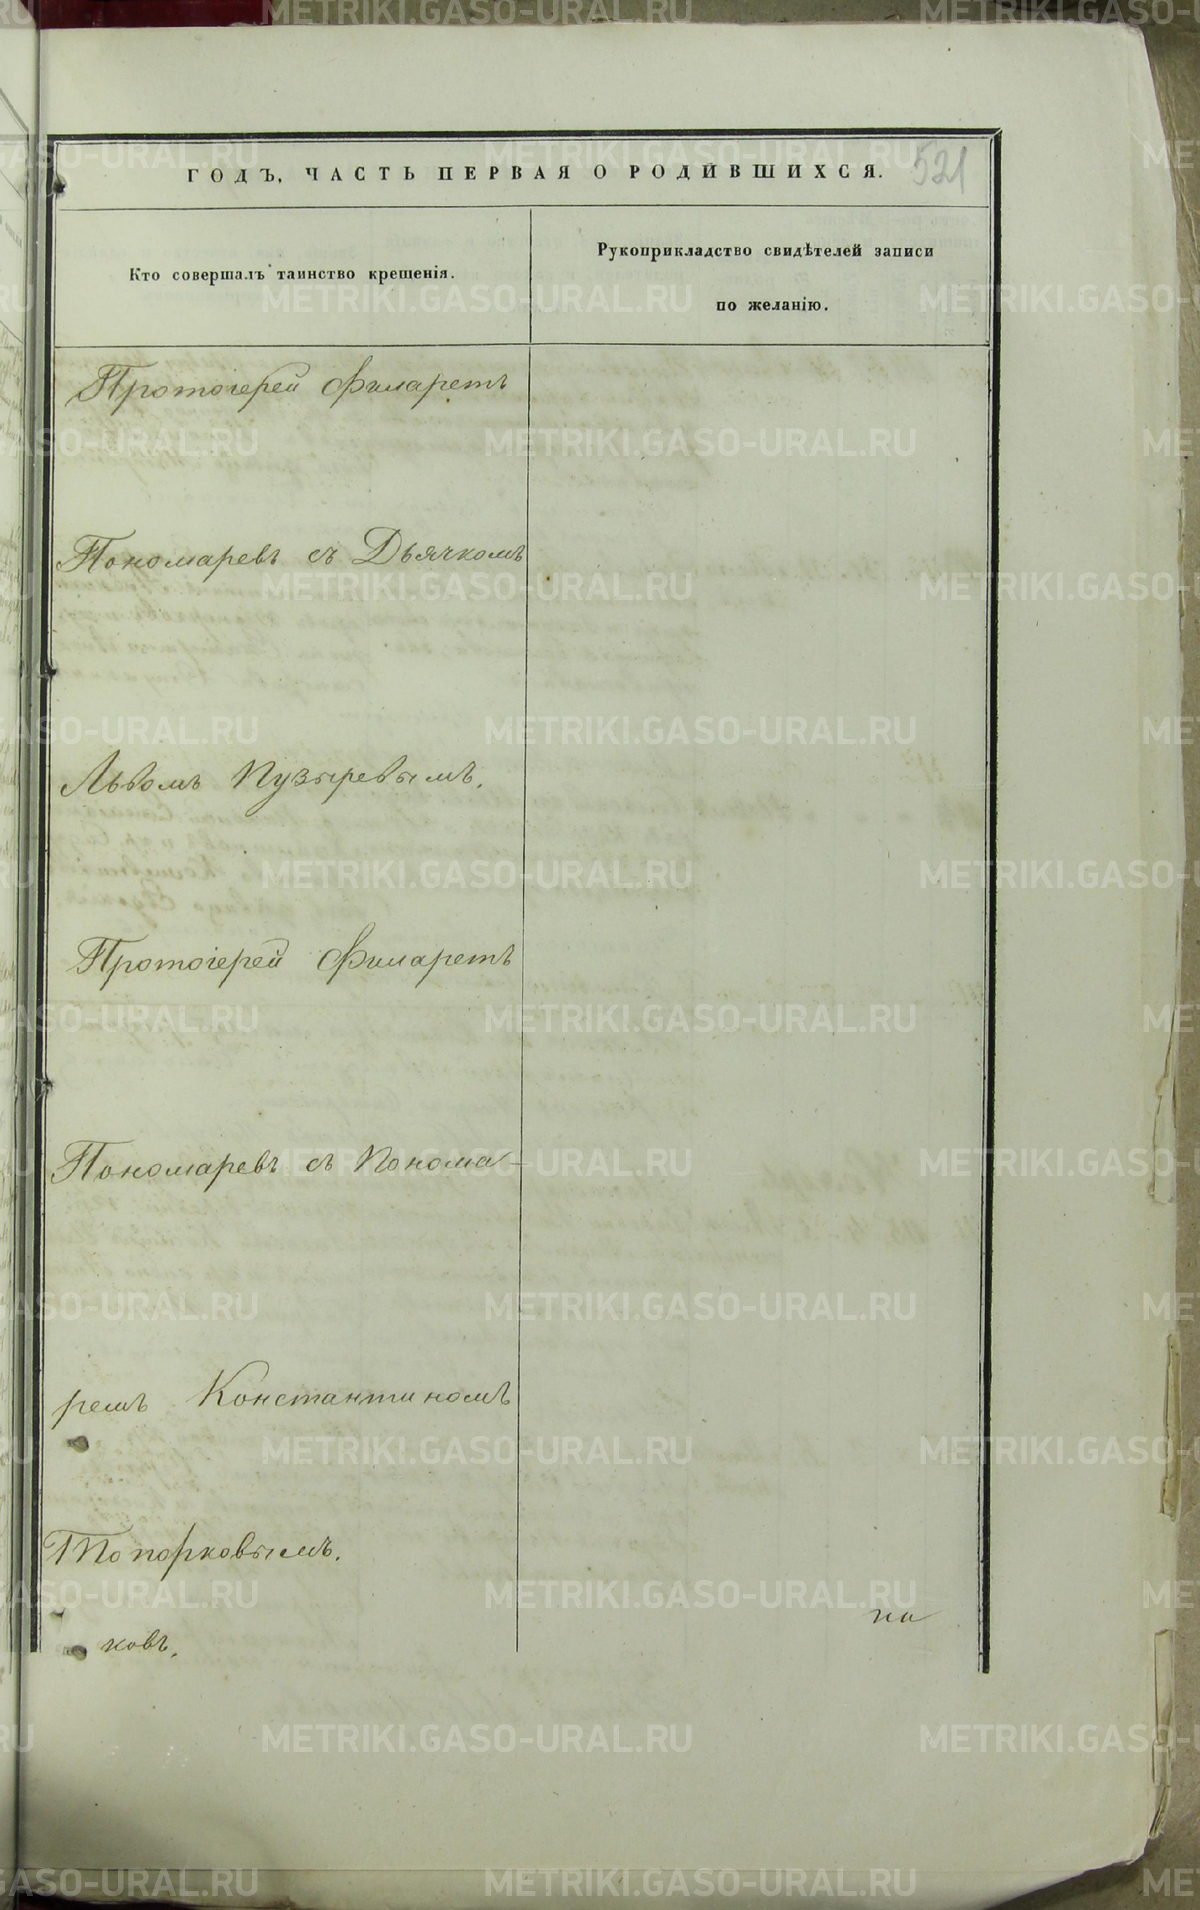 ГОДЪ, ЧАСТЬ ПЕРВАЯ О РОДИВШИХСЯ.
521
Кто совершалъ таинство крещенія.
Рукоприкладство свидѣтелей записи
по желанію.
Протоіерей Филаретъ
Пономаревъ съ Дьячкомъ
Львомъ Пузыревымъ.
Протоіерей Филаретъ
Пономаревъ съ Понома-
ремъ Константиномъ
Топорковымъ.
ковъ.
по
METRIKI.GASO-URAL.RU